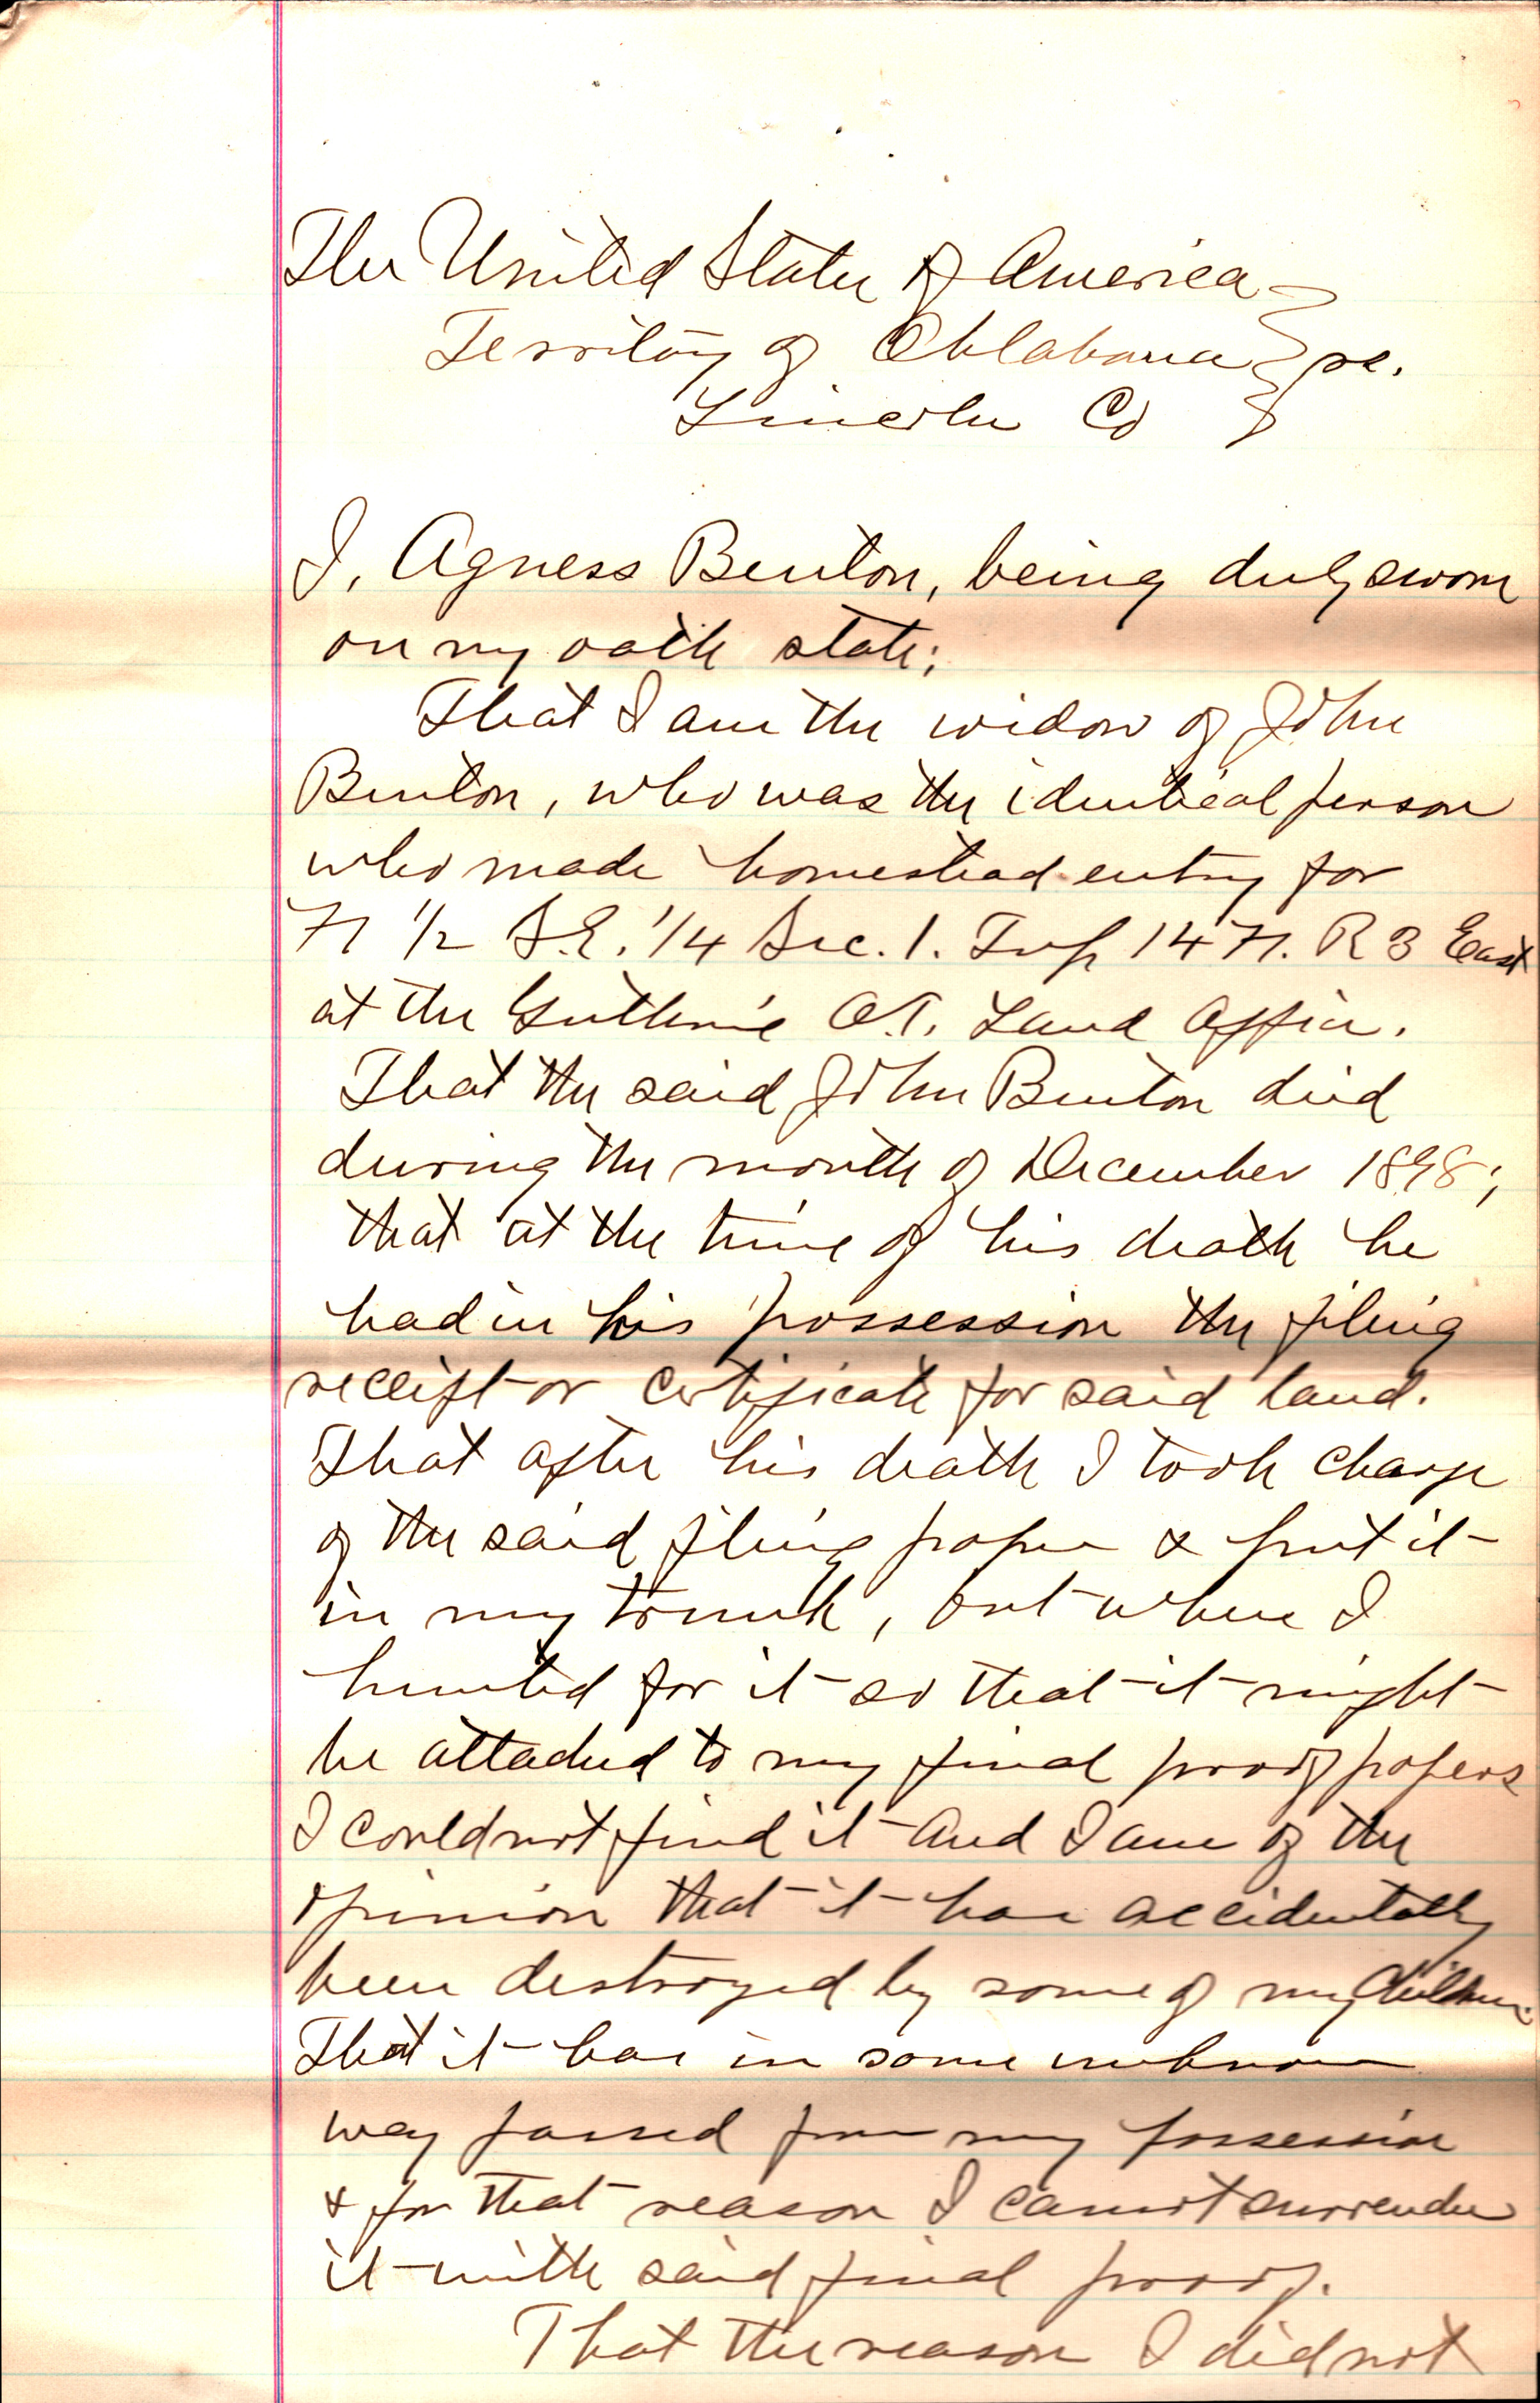 The United States of America
Territory of Oklahoma } ss.
Lincoln Co
I, Agness Benton, being duly sworn
on my oath state;
That I am the widow of John
Benton, who was the identical person
who made homestead entry for
N 1/2 S.E. 1/4 Sec. 1. Twp 14 N. R 3 East
at the Guthrie O.T. Land Office.
That the said John Benton died
during the month of December 1898;
that at the time of his death he
had in his possession the filing
receipt or certificate for said land.
That after his death I took charge
of the said filing paper & put it
in my trunk, but when I
hunted for it so that it might
be attached to my final proof papers
I could not find it and I am of the
opinion that it has accidentally
been destroyed by some of my children.
That it has in some unknown
way passed from my possession
& for that reason I cannot surrender
it with said final proof.
That the reason I did not